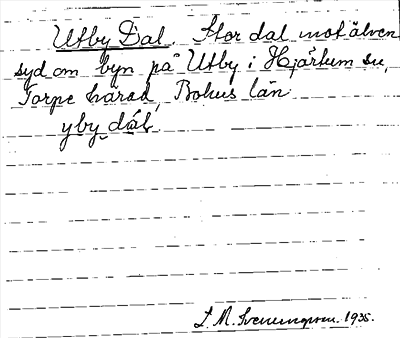 Utby Dal. Stor dal mot älven
syd om byn på Utby i Hjärtum sn,
Torpe härad, Bohus län
yby dál
L. M. Svenungsson. 1935.